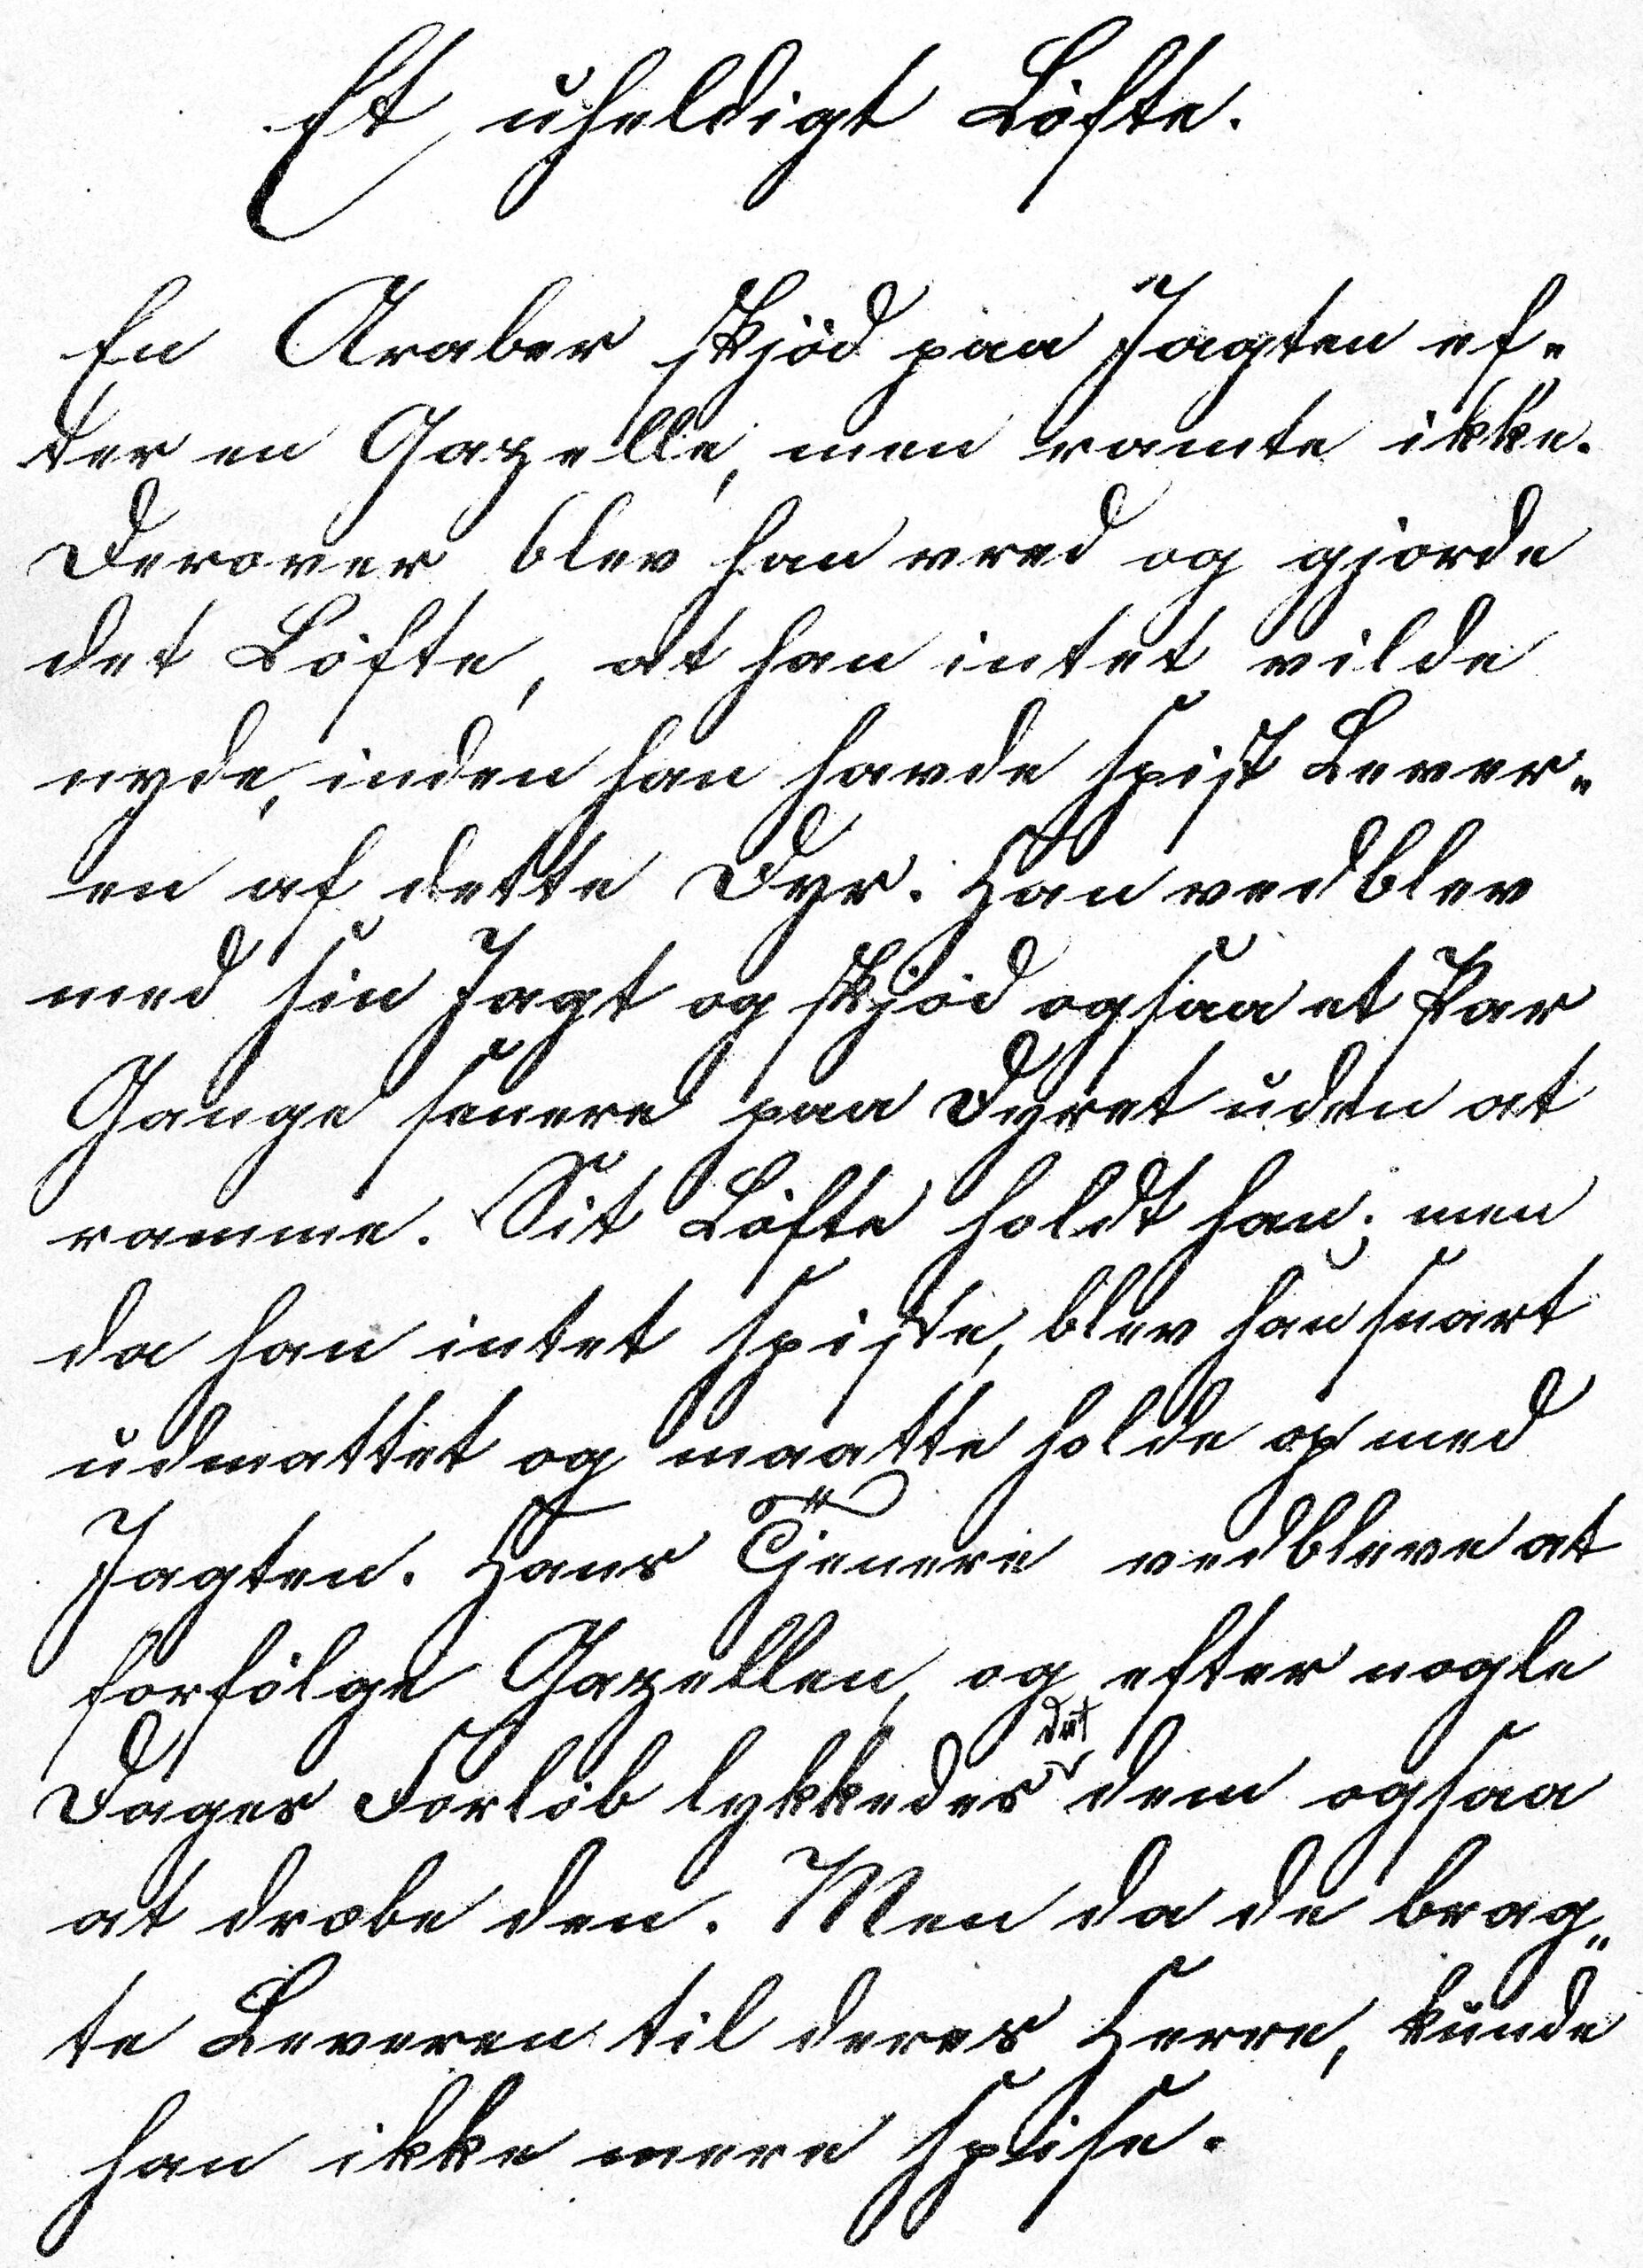 Et uheldigt Löfte.
En Araber skjöd paa Jagten ef-
ter en Gazelle, men ramte ikke.
Derover blev han vred og gjorde
det Löfte, at han intet vilde
nyde, inden han havde spist Lever-
en af dette Dyr. Han vedblev
med sin Jagt og skjöd ogsaa et Par
Gange senere paa Dyret uden at
ramme. Sit Löfte holdt han; men
da han intet spiste, blev han snart
udmattet og maatte holde op med
Jagten. Hans Tjenere vedbleve at
forfölge Gazellen, og efter nogle
Dages Forlöb lykkedes det dem ogsaa
at dræbe den. Men da de brag-
te Leveren til deres Herre, kunde
han ikke mere spise.